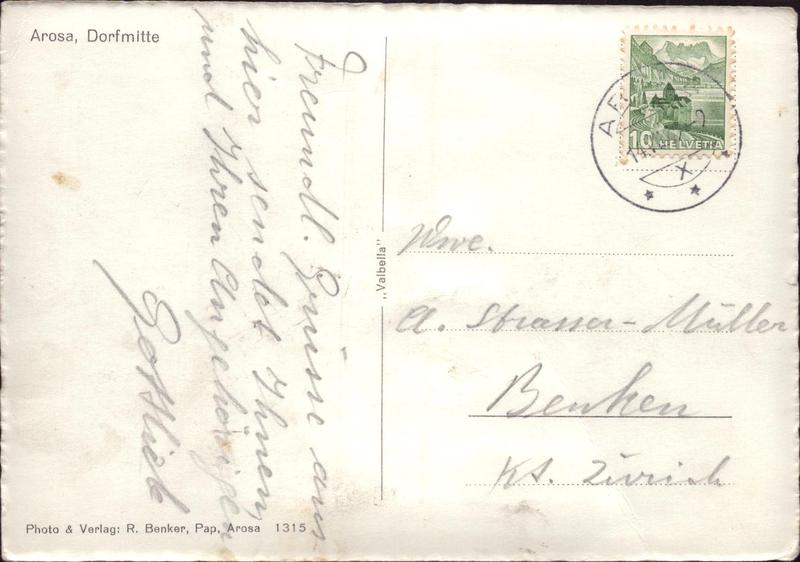 Arosa, Dorfmitte
Freundl. Grüsse aus
hier sendet Ihnen,
und Ihren Angehörigen
Gottlieb
„Valbella"
10 HELVETIA
X
Wwe.
A. Strasser-Müller
Benken
Kt. Zürich
Photo & Verlag: R. Benker, Pap, Arosa 1315